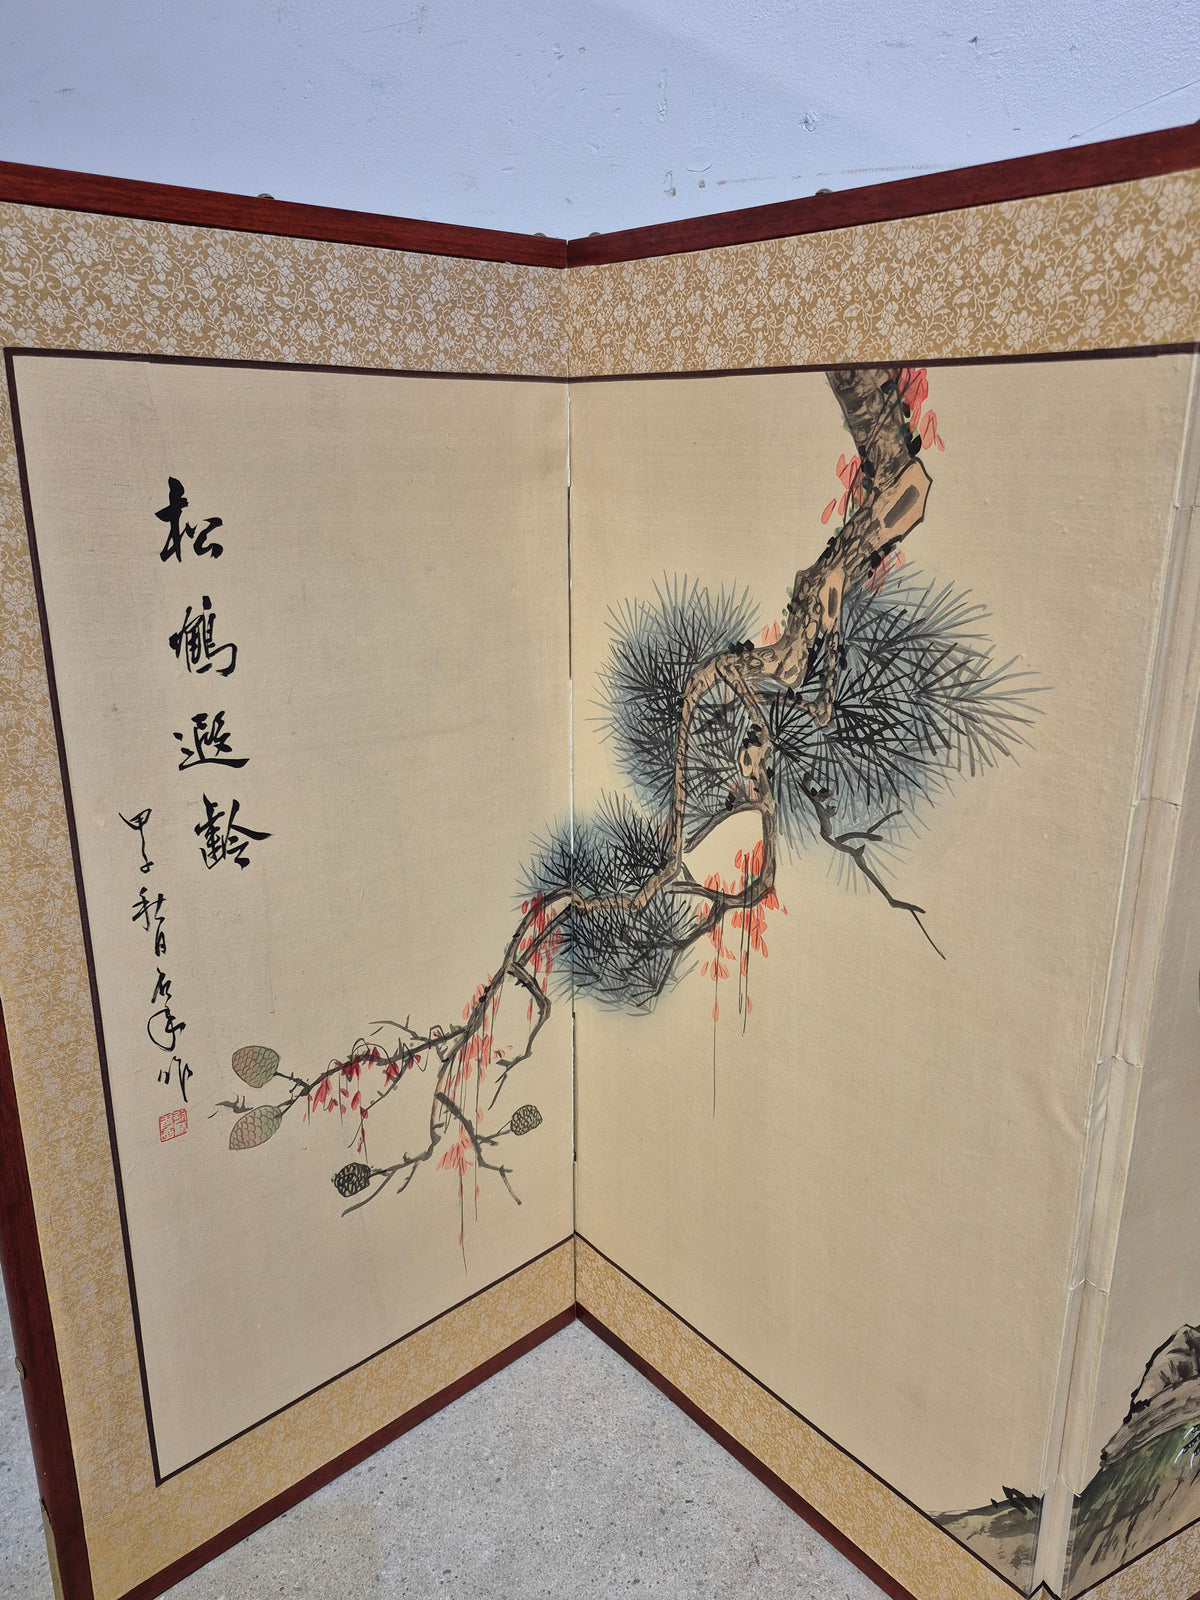 松鶴遐齡
甲子秋月石峯作